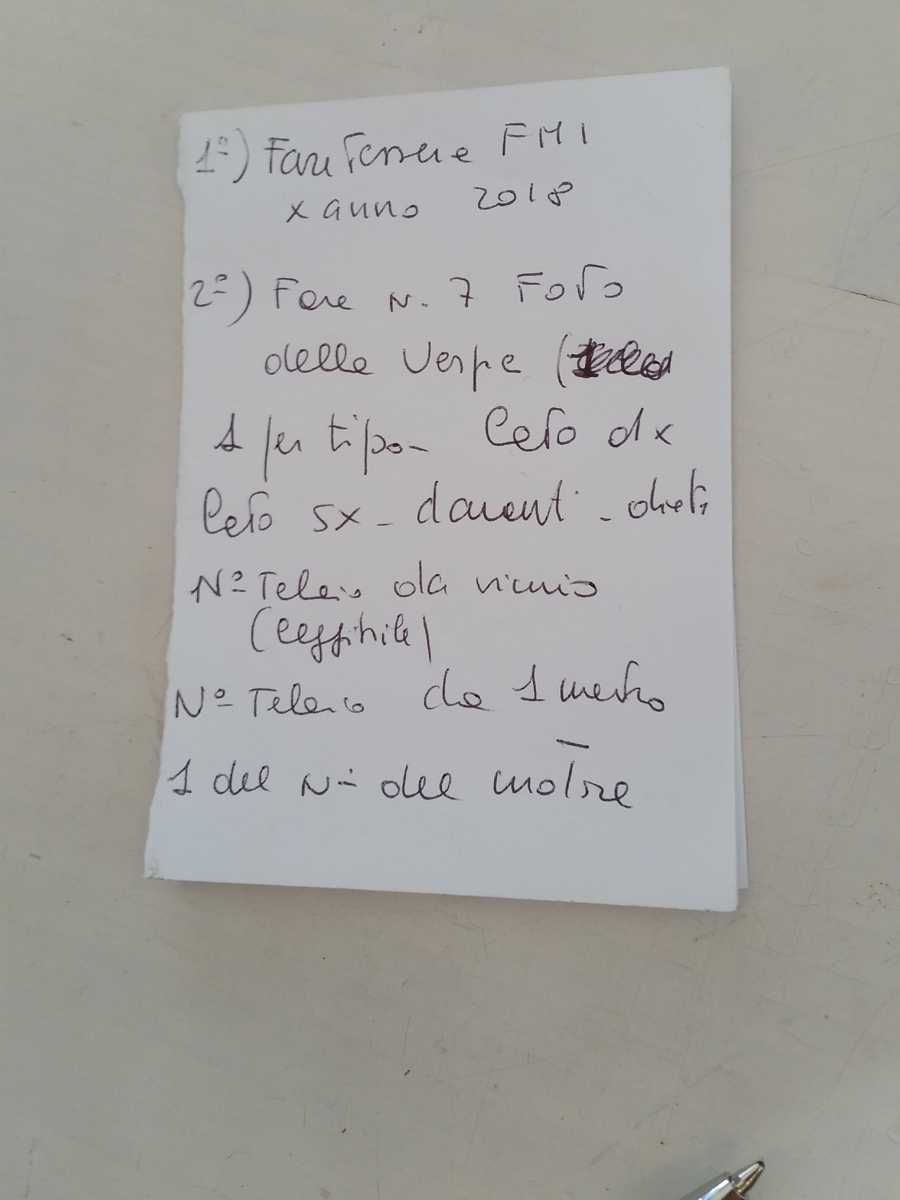 1º) Fare Tessera e FMI
x anno 2018
2º) Fare N. 7 Foto
delle Vespe (
1 per tipo - Lato dx
Lato sx - davanti - dietr
Nº Telaio da vicino
(leggibile)
Nº Telaio da 1 metro
1 del Nº del motore